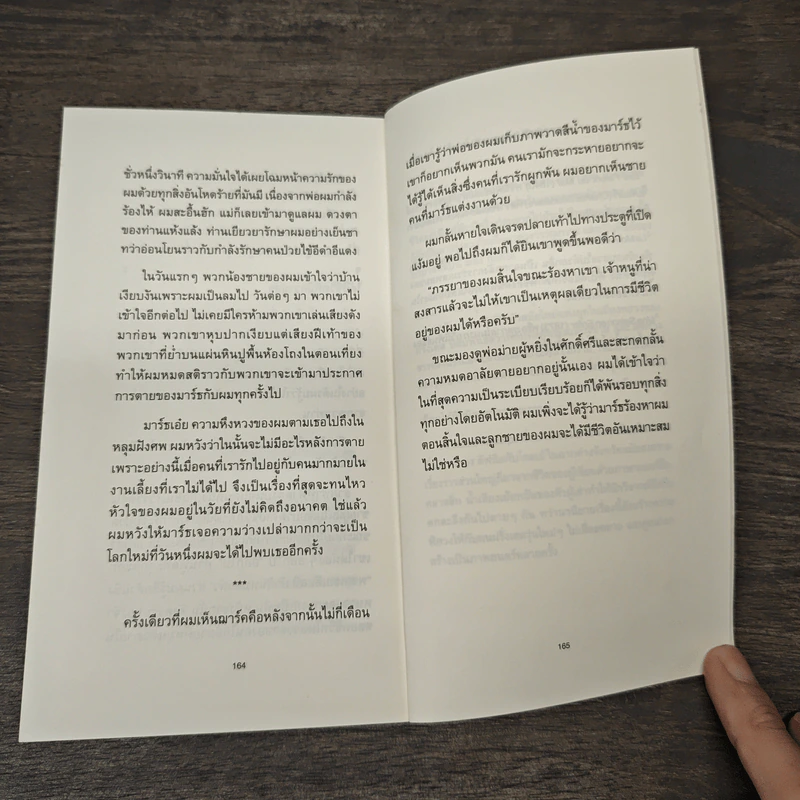 ชั่วหนึ่งวินาที ความมั่นใจได้เผยโฉมหน้าความรักของ
ผมด้วยทุกสิ่งอันโหดร้ายที่มันมี เนื่องจากพ่อผมกำลัง
ร้องไห้ ผมสะอื้นฮัก แม่ก็เลยเข้ามาดูแลผม ดวงตา
ของท่านแห้งแล้ง ท่านเยียวยารักษาผมอย่างเย็นชา
ทว่าอ่อนโยนราวกับกำลังรักษาคนป่วยไข้อีดำอีแดง
ในวันแรกๆ พวกน้องชายของผมเข้าใจว่าบ้าน
เงียบงันเพราะผมเป็นลมไป วันต่อๆ มา พวกเขาไม่
เข้าใจอีกต่อไป ไม่เคยมีใครห้ามพวกเขาเล่นเสียงดัง
มาก่อน พวกเขาหุบปากเงียบแต่เสียงฝีเท้าของ
พวกเขาที่ย่ำบนแผ่นหินปูพื้นห้องโถงในตอนเที่ยง
ทำให้ผมหมดสติราวกับพวกเขาจะเข้ามาประกาศ
การตายของมาร์ธกับผมทุกครั้งไป
มาร์ธเอ๋ย ความหึงหวงของผมตามเธอไปถึงใน
หลุมฝังศพ ผมหวังว่าในนั้นจะไม่มีอะไรหลังการตาย
เพราะอย่างนี้เมื่อคนที่เรารักไปอยู่กับคนมากมายใน
งานเลี้ยงที่เราไม่ได้ไป จึงเป็นเรื่องที่สุดจะทนไหว
หัวใจของผมอยู่ในวัยที่ยังไม่คิดถึงอนาคต ใช่แล้ว
ผมหวังให้มาร์ธเจอความว่างเปล่ามากกว่าจะเป็น
โลกใหม่ที่วันหนึ่งผมจะได้ไปพบเธออีกครั้ง
***
ครั้งเดียวที่ผมเห็นฌาร์คคือหลังจากนั้นไม่กี่เดือน
164
เมื่อเขารู้ว่าพ่อของผมเก็บภาพวาดสีน้ำของมาร์ธไว้
เขาก็อยากเห็นพวกมัน คนเรามักจะกระหายอยากจะ
ได้รู้ได้เห็นสิ่งซึ่งคนที่เรารักผูกพัน ผมอยากเห็นชาย
คนที่มาร์ธแต่งงานด้วย
ผมกลั้นหายใจเดินจรดปลายเท้าไปทางประตูที่เปิด
แง้มอยู่ พอไปถึงผมก็ได้ยินเขาพูดขึ้นพอดีว่า
"ภรรยาของผมสิ้นใจขณะร้องหาเขา เจ้าหนูที่น่า
สงสารแล้วจะไม่ให้เขาเป็นเหตุผลเดียวในการมีชีวิต
อยู่ของผมได้หรือครับ"
ขณะมองดูพ่อม่ายผู้หยิ่งในศักดิ์ศรีและสะกดกลั้น
ความหมดอาลัยตายอยากอยู่นั้นเอง ผมได้เข้าใจว่า
ในที่สุดความเป็นระเบียบเรียบร้อยก็ได้พันรอบทุกสิ่ง
ทุกอย่างโดยอัตโนมัติ ผมเพิ่งจะได้รู้ว่ามาร์ธร้องหาผม
ตอนสิ้นใจและลูกชายของผมจะได้มีชีวิตอันเหมาะสม
ไม่ใช่หรือ
165